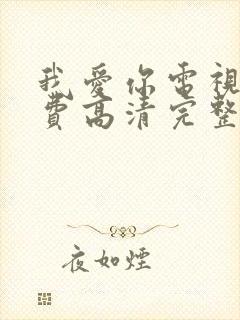 我愛你電視
費高清完整
夜如煙